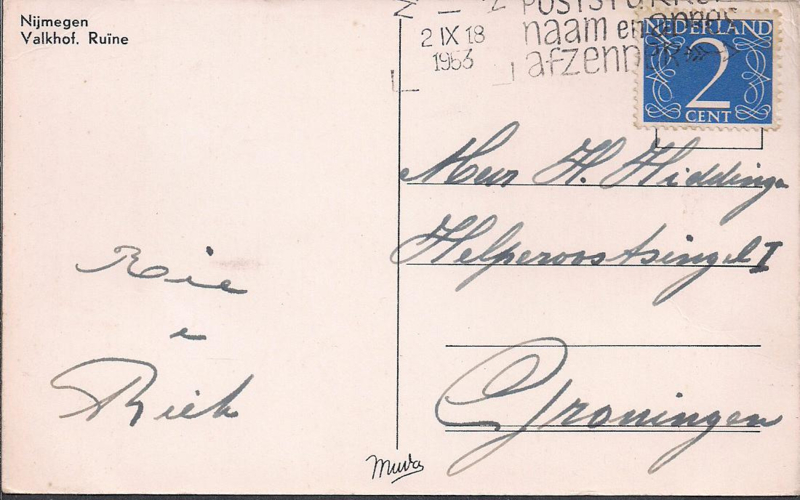 Nijmegen
Valkhof. Ruïne
2 IX 18
1953
POSTSTUKKEN
naam en adres
afzender
NEDERLAND
2
CENT
H. Hiddinga
Helperoostsingel I
Groningen
Rie
e
Riek
Muva